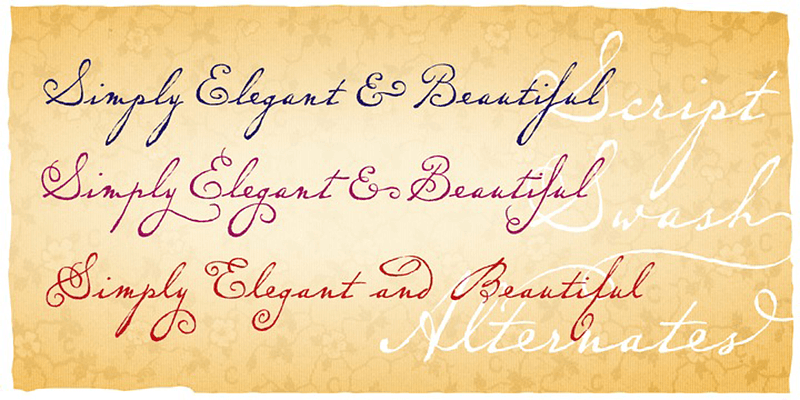 Simply Elegant & Beautiful
Script
Simply Elegant & Beautiful
Swash
Simply Elegant and Beautiful
Alternates